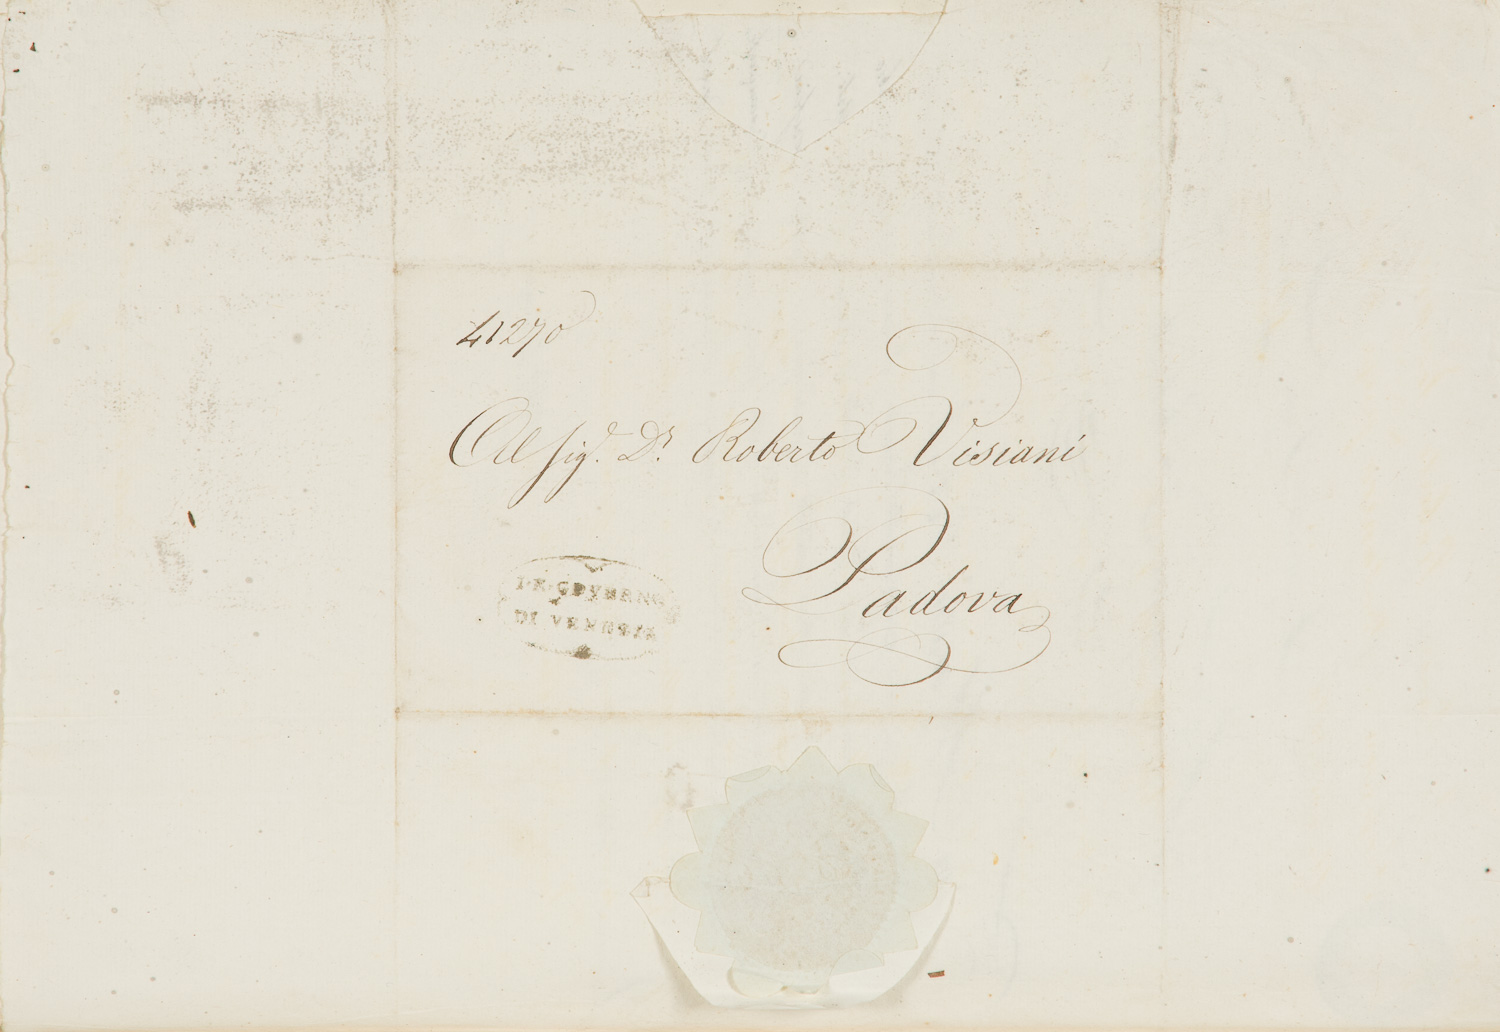 41270
Al Sig.r Dr Roberto Visiani
Padova
I. R. GOVERNO
DI VENEZIA